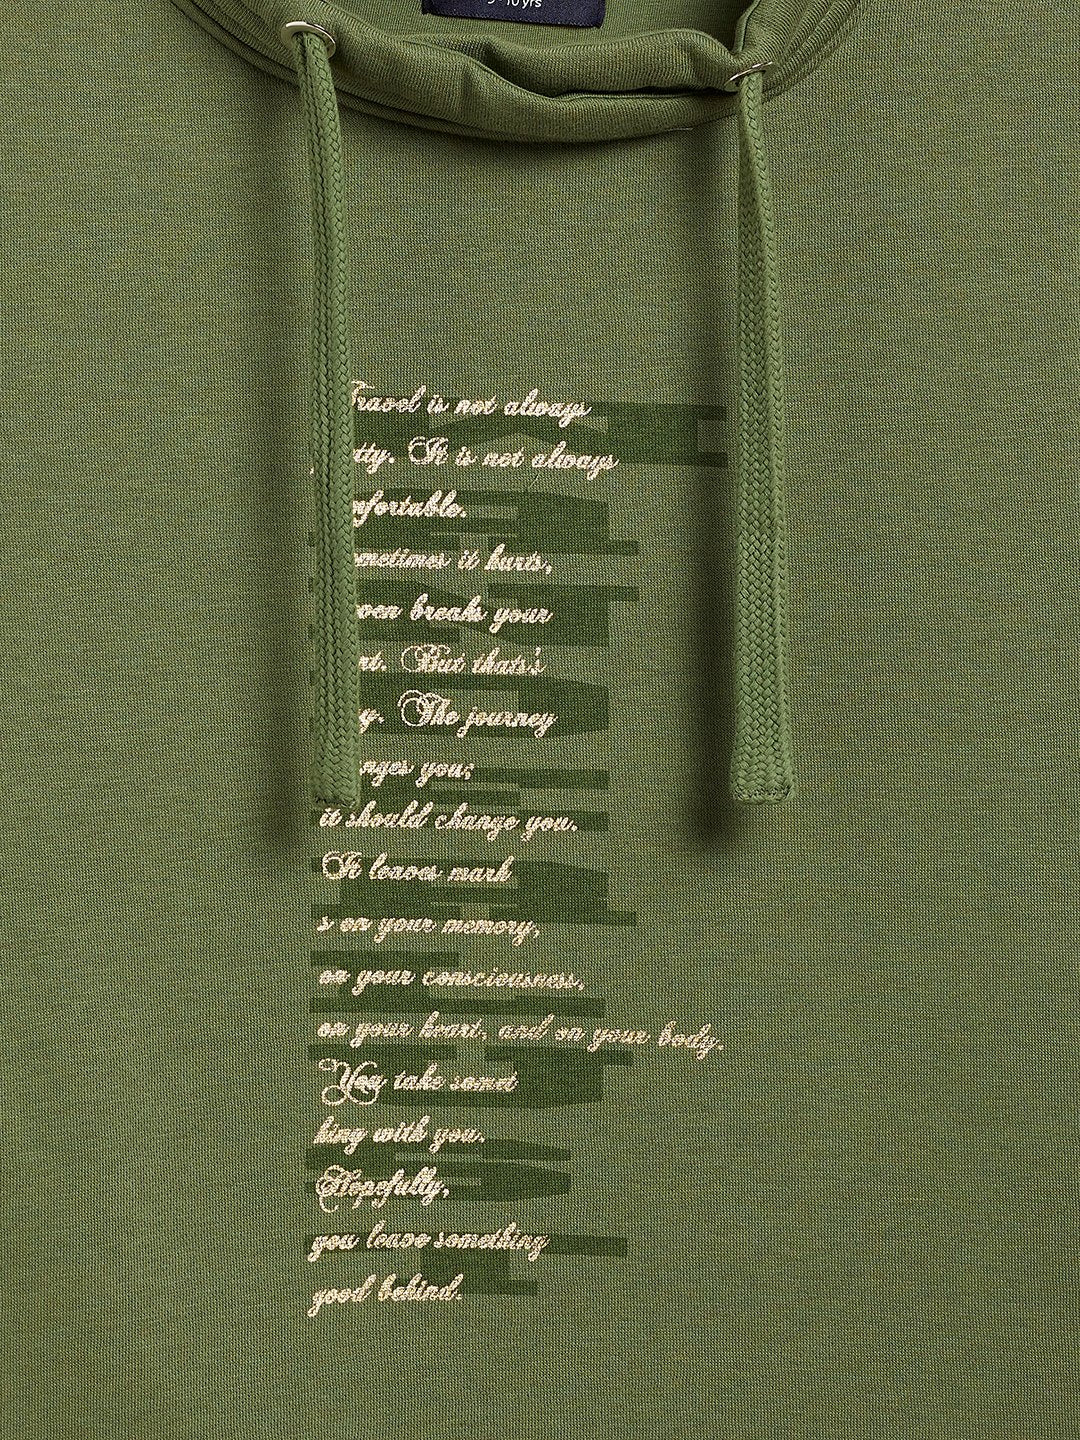 10 yrs
Travel is not always
tty. It is not always
mfortable.
ometimes it hurts,
ven breaks your
rt. But thats's
y. The journey
nges you;
it should change you.
It leaves mark
s on your memory,
on your consciousness,
on your heart, and on your body.
You take somet
hing with you.
Hopefully,
you leave something
good behind.